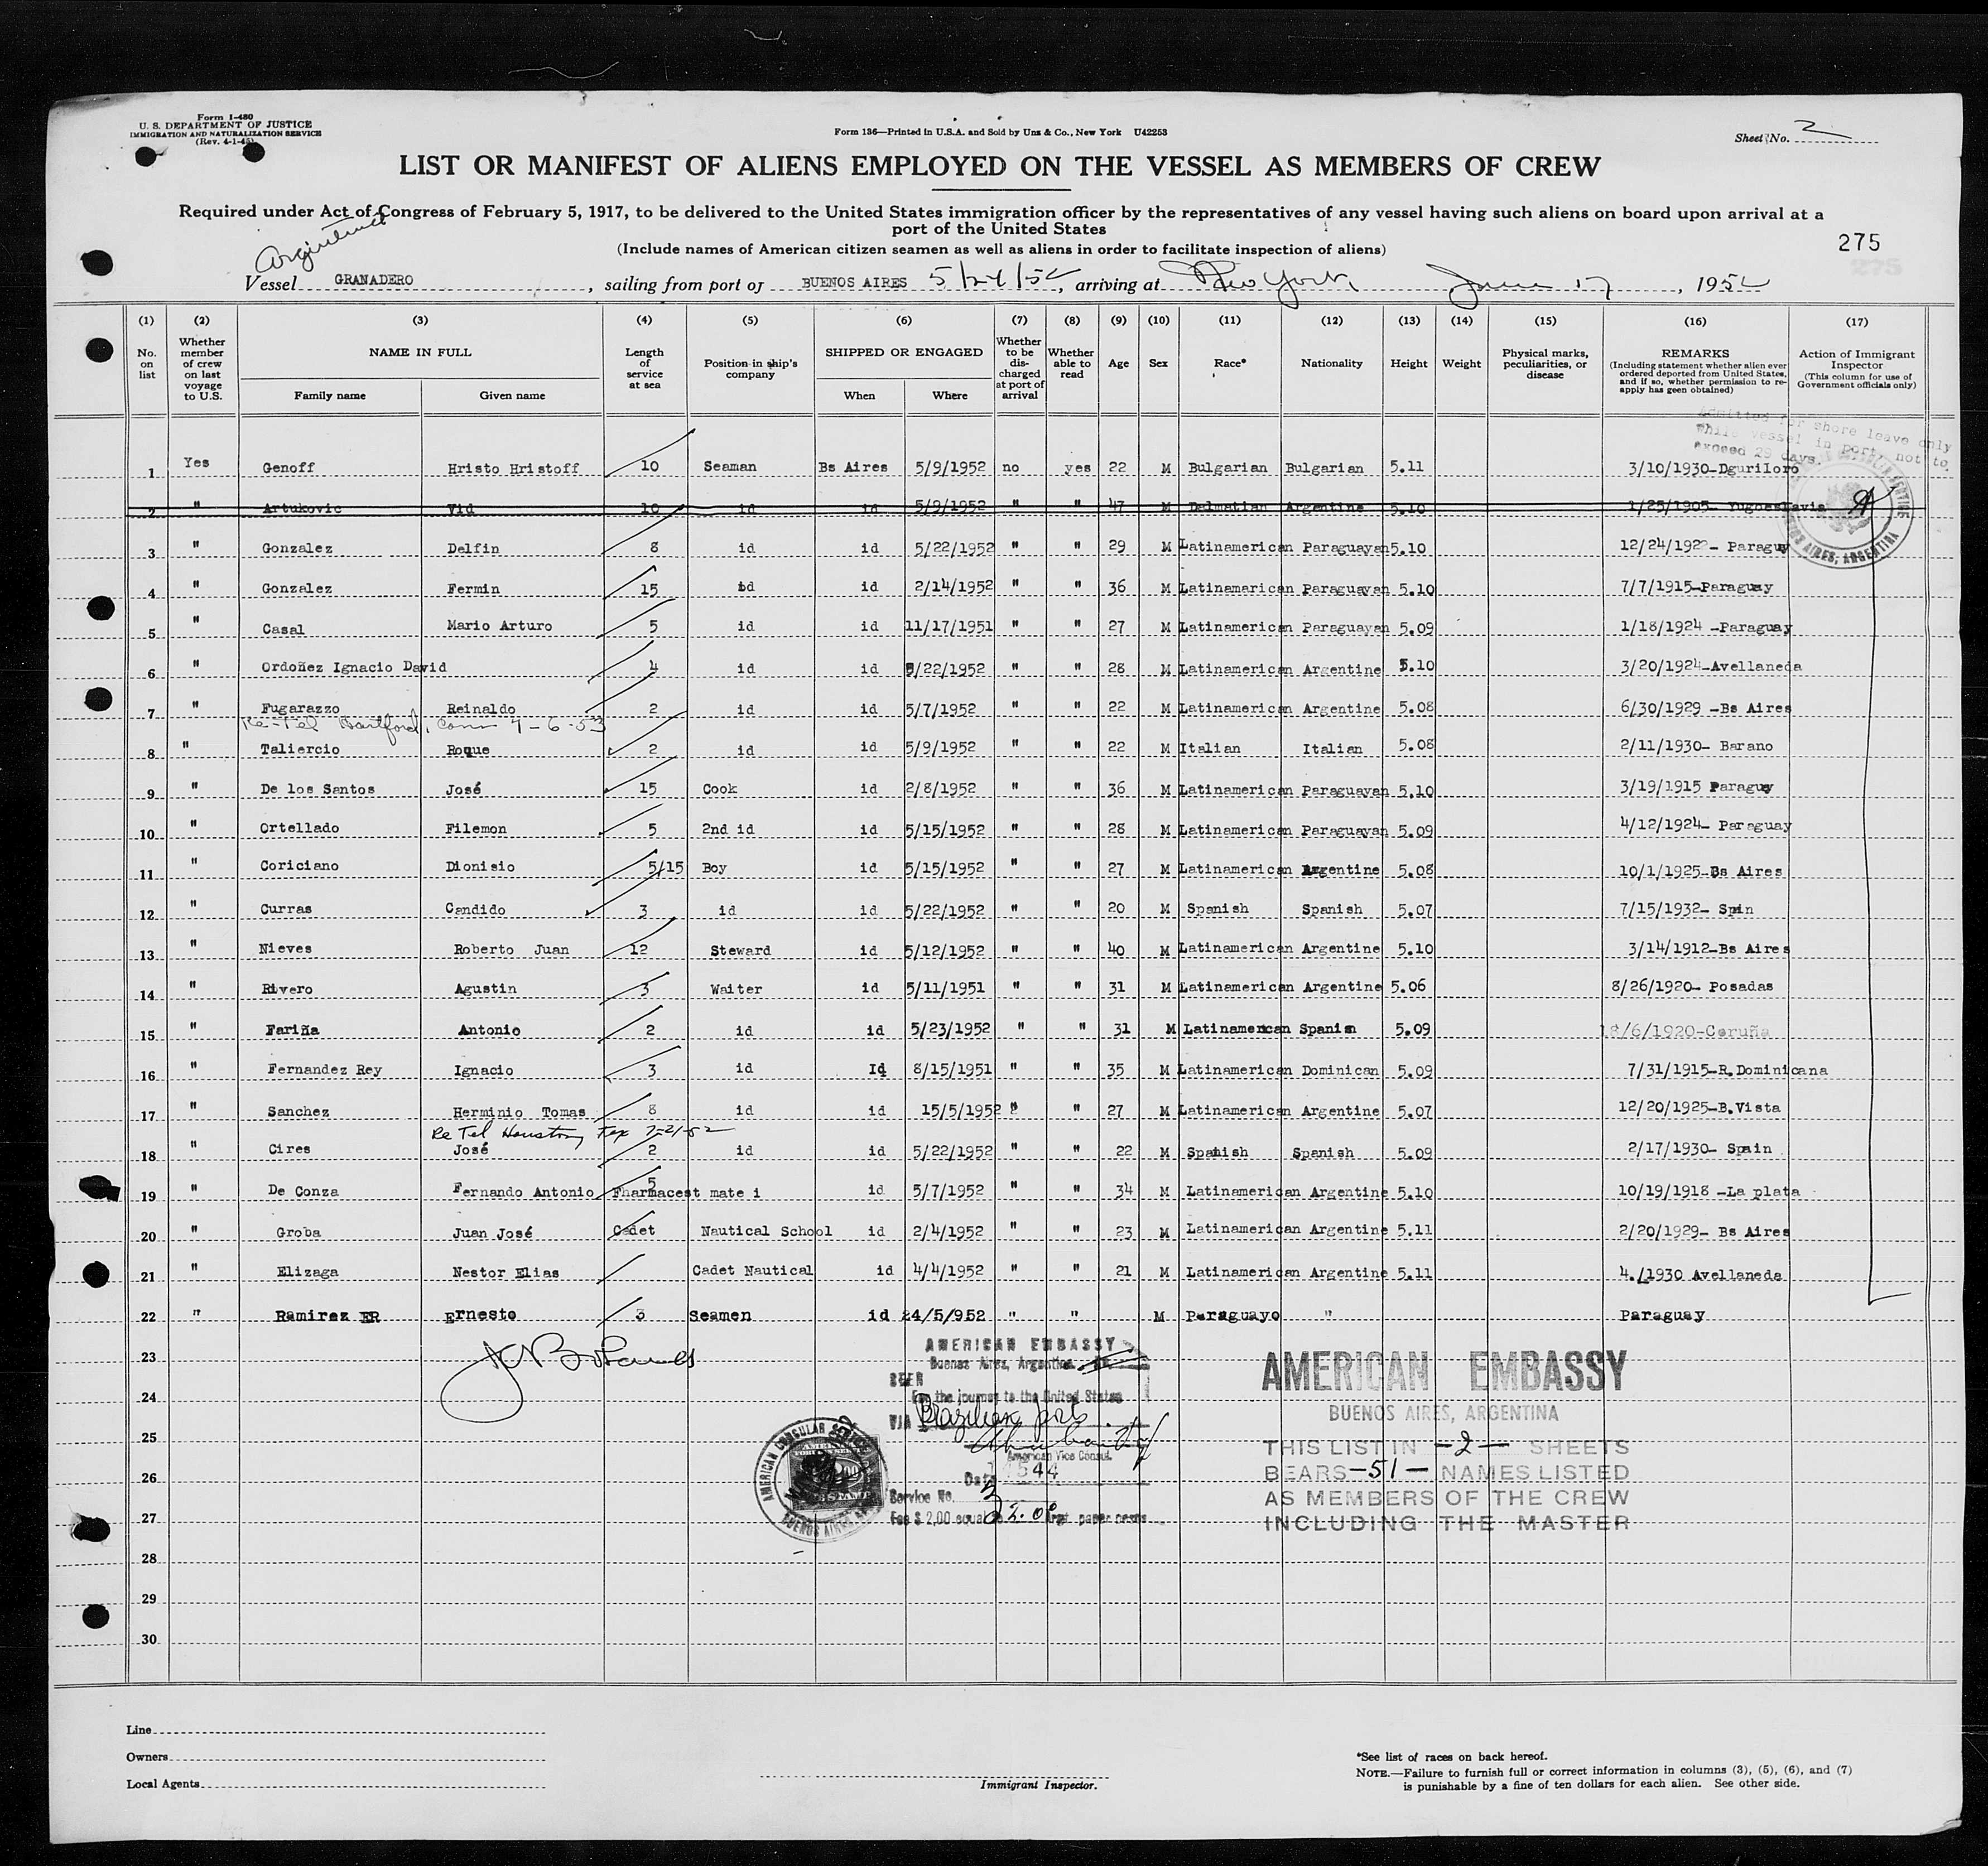 Form I-480
U. S. DEPARTMENT OF JUSTICE
IMMIGRATION AND NATURALIZATION SERVICE
(Rev. 4-1-45)
Form 136—Printed in U.S.A. and Sold by Unz & Co., New York U42253
Sheet No. 2
LIST OR MANIFEST OF ALIENS EMPLOYED ON THE VESSEL AS MEMBERS OF CREW
Required under Act of Congress of February 5, 1917, to be delivered to the United States immigration officer by the representatives of any vessel having such aliens on board upon arrival at a
port of the United States
(Include names of American citizen seamen as well as aliens in order to facilitate inspection of aliens)
275
Argentina
Vessel GRANADERO, sailing from port of BUENOS AIRES 5/24/52, arriving at New York, June 17, 1952
(1) (2) (3) (4) (5) (6) (7) (8) (9) (10) (11) (12) (13) (14) (15) (16) (17)
No. on list
Whether member of crew on last voyage to U.S.
NAME IN FULL
Family name Given name
Length of service at sea
Position in ship's company
SHIPPED OR ENGAGED
When Where
Whether to be discharged at port of arrival
Whether able to read
Age
Sex
Race*
Nationality
Height
Weight
Physical marks, peculiarities, or disease
REMARKS
(Including statement whether alien ever ordered deported from United States, and if so, whether permission to re-apply has geen obtained)
Action of Immigrant Inspector
(This column for use of Government officials only)
Admitted for shore leave only
while vessel in port, not to
exceed 29 days.
1 Yes Genoff Hristo Hristoff 10 Seaman Bs Aires 5/9/1952 no yes 22 M Bulgarian Bulgarian 5.11 3/10/1930-Dguriloro
2 " Artukovic Vid 10 id id 5/9/1952 " " 47 M Dalmatian Argentine 5.10 1/25/1905- Yugoeslavia
3 " Gonzalez Delfin 8 id id 5/22/1952 " " 29 M Latinamerican Paraguayan 5.10 12/24/1922- Paraguy
4 " Gonzalez Fermin 15 bd id 2/14/1952 " " 36 M Latinamerican Paraguayan 5.10 7/7/1915-Paraguay
5 " Casal Mario Arturo 5 id id 11/17/1951 " " 27 M Latinamerican Paraguayan 5.09 1/18/1924 -Paraguay
6 " Ordoñez Ignacio David 4 id id 5/22/1952 " " 28 M Latinamerican Argentine 5.10 3/20/1924-Avellaneda
7 " Fugarazzo Reinaldo 2 id id 5/7/1952 " " 22 M Latinamerican Argentine 5.08 6/30/1929 -Bs Aires
Re-Tel Hartford, Conn 4-6-53
8 " Taliercio Roque 2 id id 5/9/1952 " " 22 M Italian Italian 5.08 2/11/1930- Barano
9 " De los Santos José 15 Cook id 2/8/1952 " " 36 M Latinamerican Paraguayan 5.10 3/19/1915 Paraguy
10 " Ortellado Filemon 5 2nd id id 5/15/1952 " " 28 M Latinamerican Paraguayan 5.09 4/12/1924- Paraguay
11 " Coriciano Dionisio 5/15 Boy id 5/15/1952 " " 27 M Latinamerican Argentine 5.08 10/1/1925-Bs Aires
12 " Curras Candido 3 id id 5/22/1952 " " 20 M Spanish Spanish 5.07 7/15/1932- Spin
13 " Nieves Roberto Juan 12 Steward id 5/12/1952 " " 40 M Latinamerican Argentine 5.10 3/14/1912-Bs Aires
14 " Rivero Agustin 3 Waiter id 5/11/1951 " " 31 M Latinamerican Argentine 5.06 8/26/1920- Posadas
15 " Fariña Antonio 2 id id 5/23/1952 " " 31 M Latinamerican Spanis 5.09 18/6/1920-Coruña
16 " Fernandez Rey Ignacio 3 id Id 8/15/1951 " " 35 M Latinamerican Dominican 5.09 7/31/1915-R.Dominicana
17 " Sanchez Herminio Tomas 8 id id 15/5/1952 " " 27 M Latinamerican Argentine 5.07 12/20/1925-B.Vista
Re Tel Houston, Tex 7-21-52
18 " Cires José 2 id id 5/22/1952 " " 22 M Spahish Spanish 5.09 2/17/1930- Spain
19 " De Conza Fernando Antonio 5 Fharmacest mate i id 5/7/1952 " " 34 M Latinamerican Argentine 5.10 10/19/1918 -La plata
20 " Groba Juan José Cadet Nautical School id 2/4/1952 " " 23 M Latinamerican Argentine 5.11 2/20/1929- Bs Aires
21 " Elizaga Nestor Elias Cadet Nautical id 4/4/1952 " " 21 M Latinamerican Argentine 5.11 4./1930 Avellaneda
22 " Ramirez ER Ernesto 3 Seamen id 24/5/952 " " M Paraguayo " Paraguay
23
24
25
26
27
28
29
30
AMERICAN EMBASSY
Buenos Aires, Argentina
SEEN
For the journey to the United States
VIA Brazilian ports
American Vice Consul.
Date
Service No.
Fee $ 2.00 equal 32.00 Arg. paper pesos
AMERICAN CONSULAR SERVICE
BUENOS AIRES
AMERICAN EMBASSY
BUENOS AIRES, ARGENTINA
THIS LIST IN -2- SHEETS
BEARS -51- NAMES LISTED
AS MEMBERS OF THE CREW
INCLUDING THE MASTER
Line
Owners
Local Agents
Immigrant Inspector.
*See list of races on back hereof.
NOTE.—Failure to furnish full or correct information in columns (3), (5), (6), and (7)
is punishable by a fine of ten dollars for each alien. See other side.